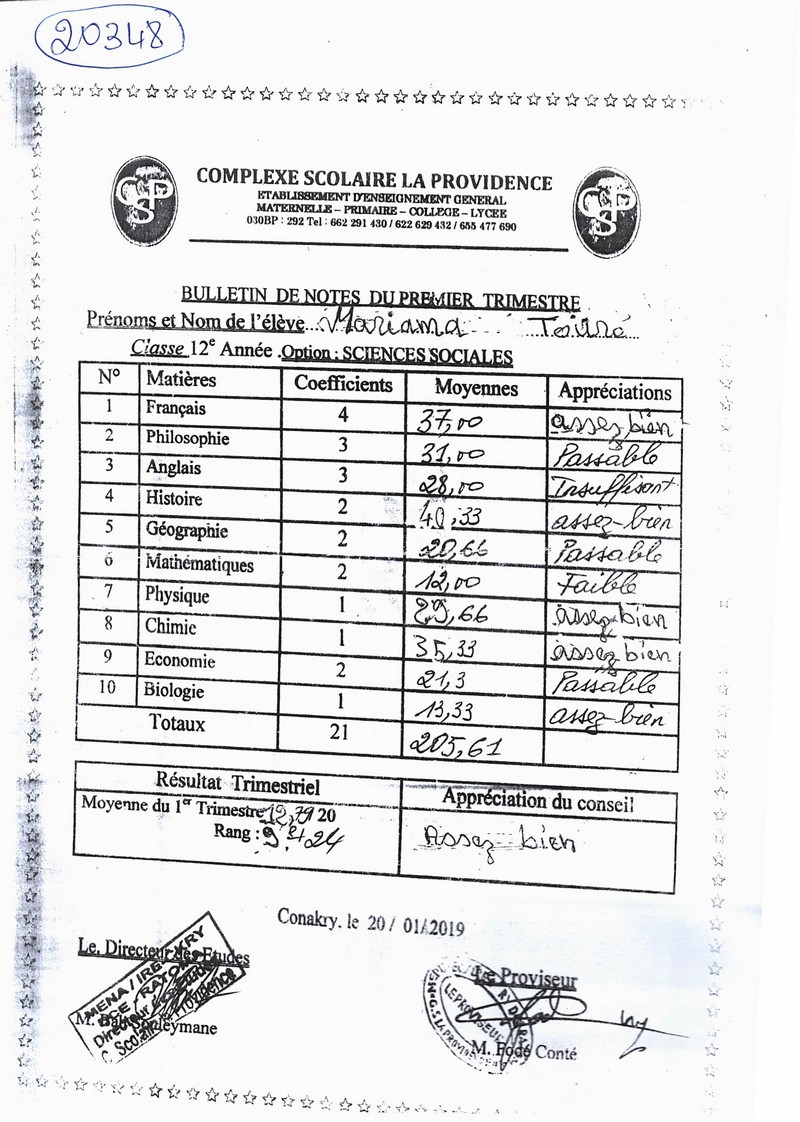 20348
COMPLEXE SCOLAIRE LA PROVIDENCE
ETABLISSEMENT D'ENSEIGNEMENT GENERAL
MATERNELLE – PRIMAIRE – COLLEGE – LYCEE
030BP : 292 Tel : 662 291 430 / 622 629 432 / 655 477 690
BULLETIN DE NOTES DU PREMIER TRIMESTRE
Prénoms et Nom de l'élève Mariama Touré
Classe 12e Année Option : SCIENCES SOCIALES
N° Matières Coefficients Moyennes Appréciations
1 Français 4 37,00 assez bien
2 Philosophie 3 31,00 Passable
3 Anglais 3 28,00 Insuffisant
4 Histoire 2 40,33 assez-bien
5 Géographie 2 20,66 Passable
6 Mathématiques 2 12,00 Faible
7 Physique 1 ,66 assez bien
8 Chimie 1 35,33 assez bien
9 Economie 2 21,3 Passable
10 Biologie 1 13,33 assez-bien
Totaux 21 205,61
Résultat Trimestriel Appréciation du conseil
Moyenne du 1er Trimestre 20
Rang : Assez bien
Conakry, le 20 / 01/2019
Le Directeur des Etudes
Le Proviseur
M. Souleymane
M. Fodé Conté